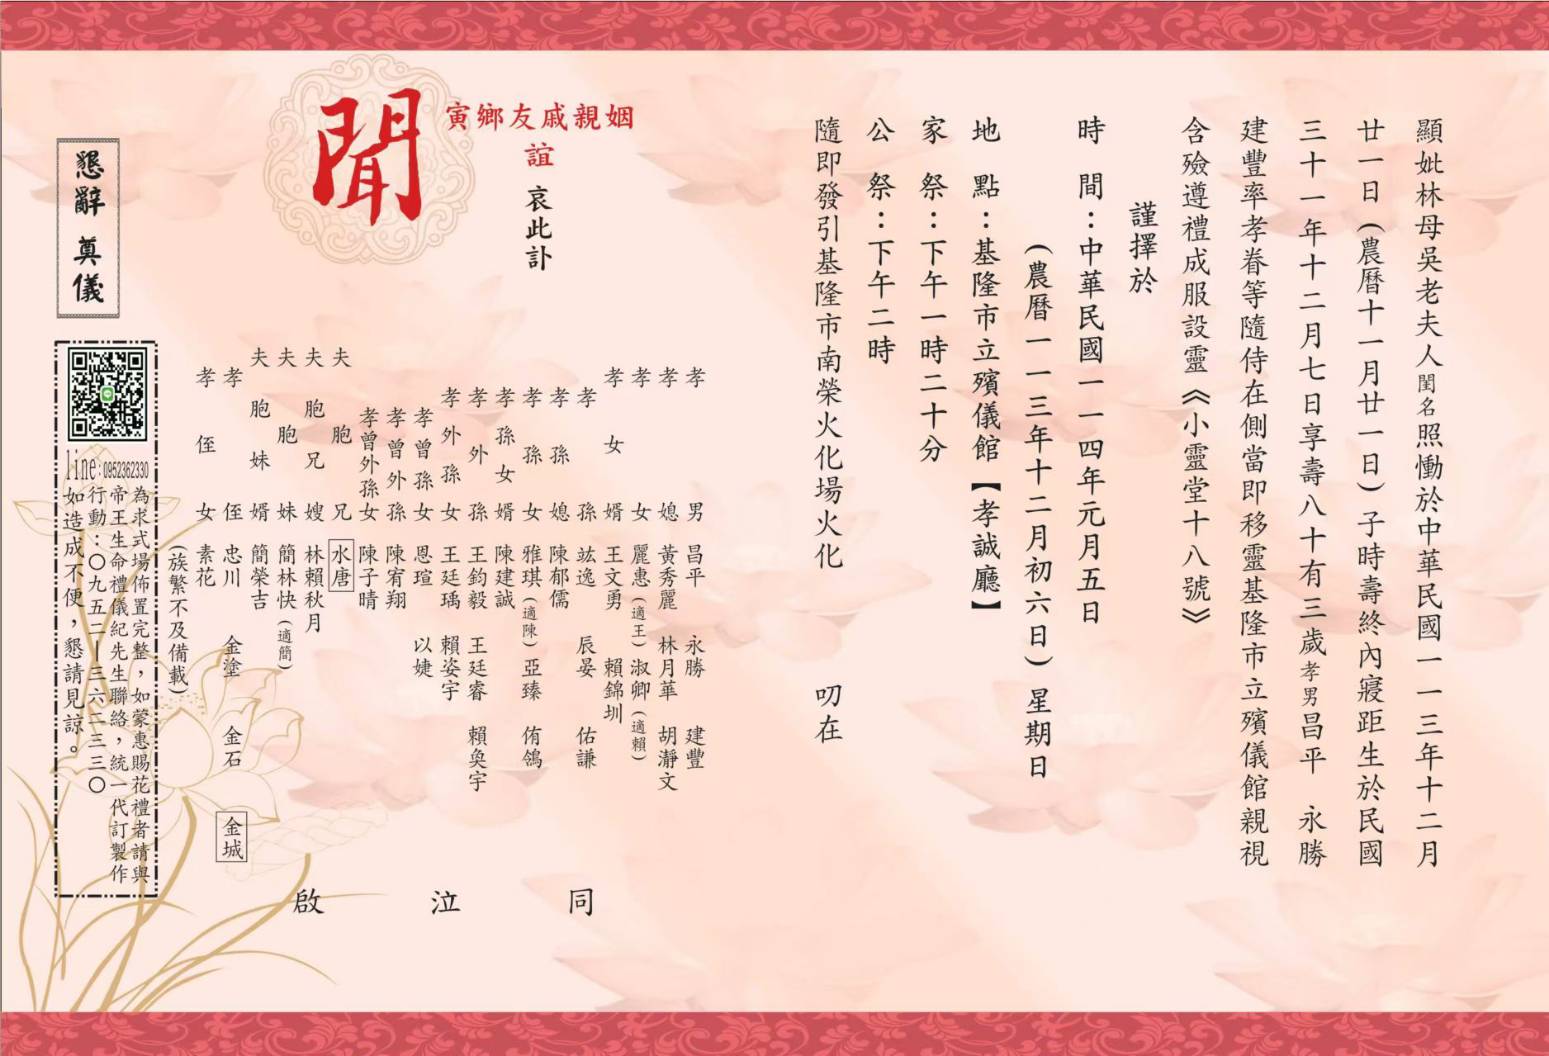 顯妣林母吳老夫人閨名照慟於中華民國一一三年十二月
廿一日(農曆十一月廿一日)子時壽終內寢距生於民國
三十一年十二月七日享壽八十有三歲孝男昌平 永勝
建豐率孝眷等隨侍在側當即移靈基隆市立殯儀館親視
含殮遵禮成服設靈《小靈堂十八號》
謹擇於
時 間：中華民國一一四年元月五日
(農曆一一三年十二月初六日)星期日
地 點：基隆市立殯儀館【孝誠廳】
家 祭：下午一時二十分
公 祭：下午二時
隨即發引基隆市南榮火化場火化 叨在
姻親戚友鄉寅
誼 哀此訃
聞
孝男 昌平 永勝 建豐
孝媳 黃秀麗 林月華 胡瀞文
孝女 麗惠(適王) 淑卿(適賴)
孝女婿 王文勇 賴錦圳
孝孫 竑逸 辰晏 佑謙
孝孫媳 陳郁儒
孝孫女 雅琪(適陳) 亞臻 侑鴿
孝孫女婿 陳建誠
孝外孫 王鈞毅 王廷睿 賴奐宇
孝外孫女 王廷瑀 賴姿宇
孝曾孫女 恩瑄 以婕
孝曾外孫 陳宥翔
孝曾外孫女 陳子晴
夫胞兄 水唐
夫胞兄嫂 林賴秋月
夫胞妹 簡林快(適簡)
夫胞妹婿 簡榮吉
孝侄 忠川 金塗 金石 金城
孝侄女 素花
(族繁不及備載)
同泣啟
懇辭 奠儀
line:0952362330
為求式場佈置完整，如蒙惠賜花禮者請與
帝王生命禮儀紀先生聯絡，統一代訂製作
行動：〇九五二-三六二三三〇
如造成不便，懇請見諒。